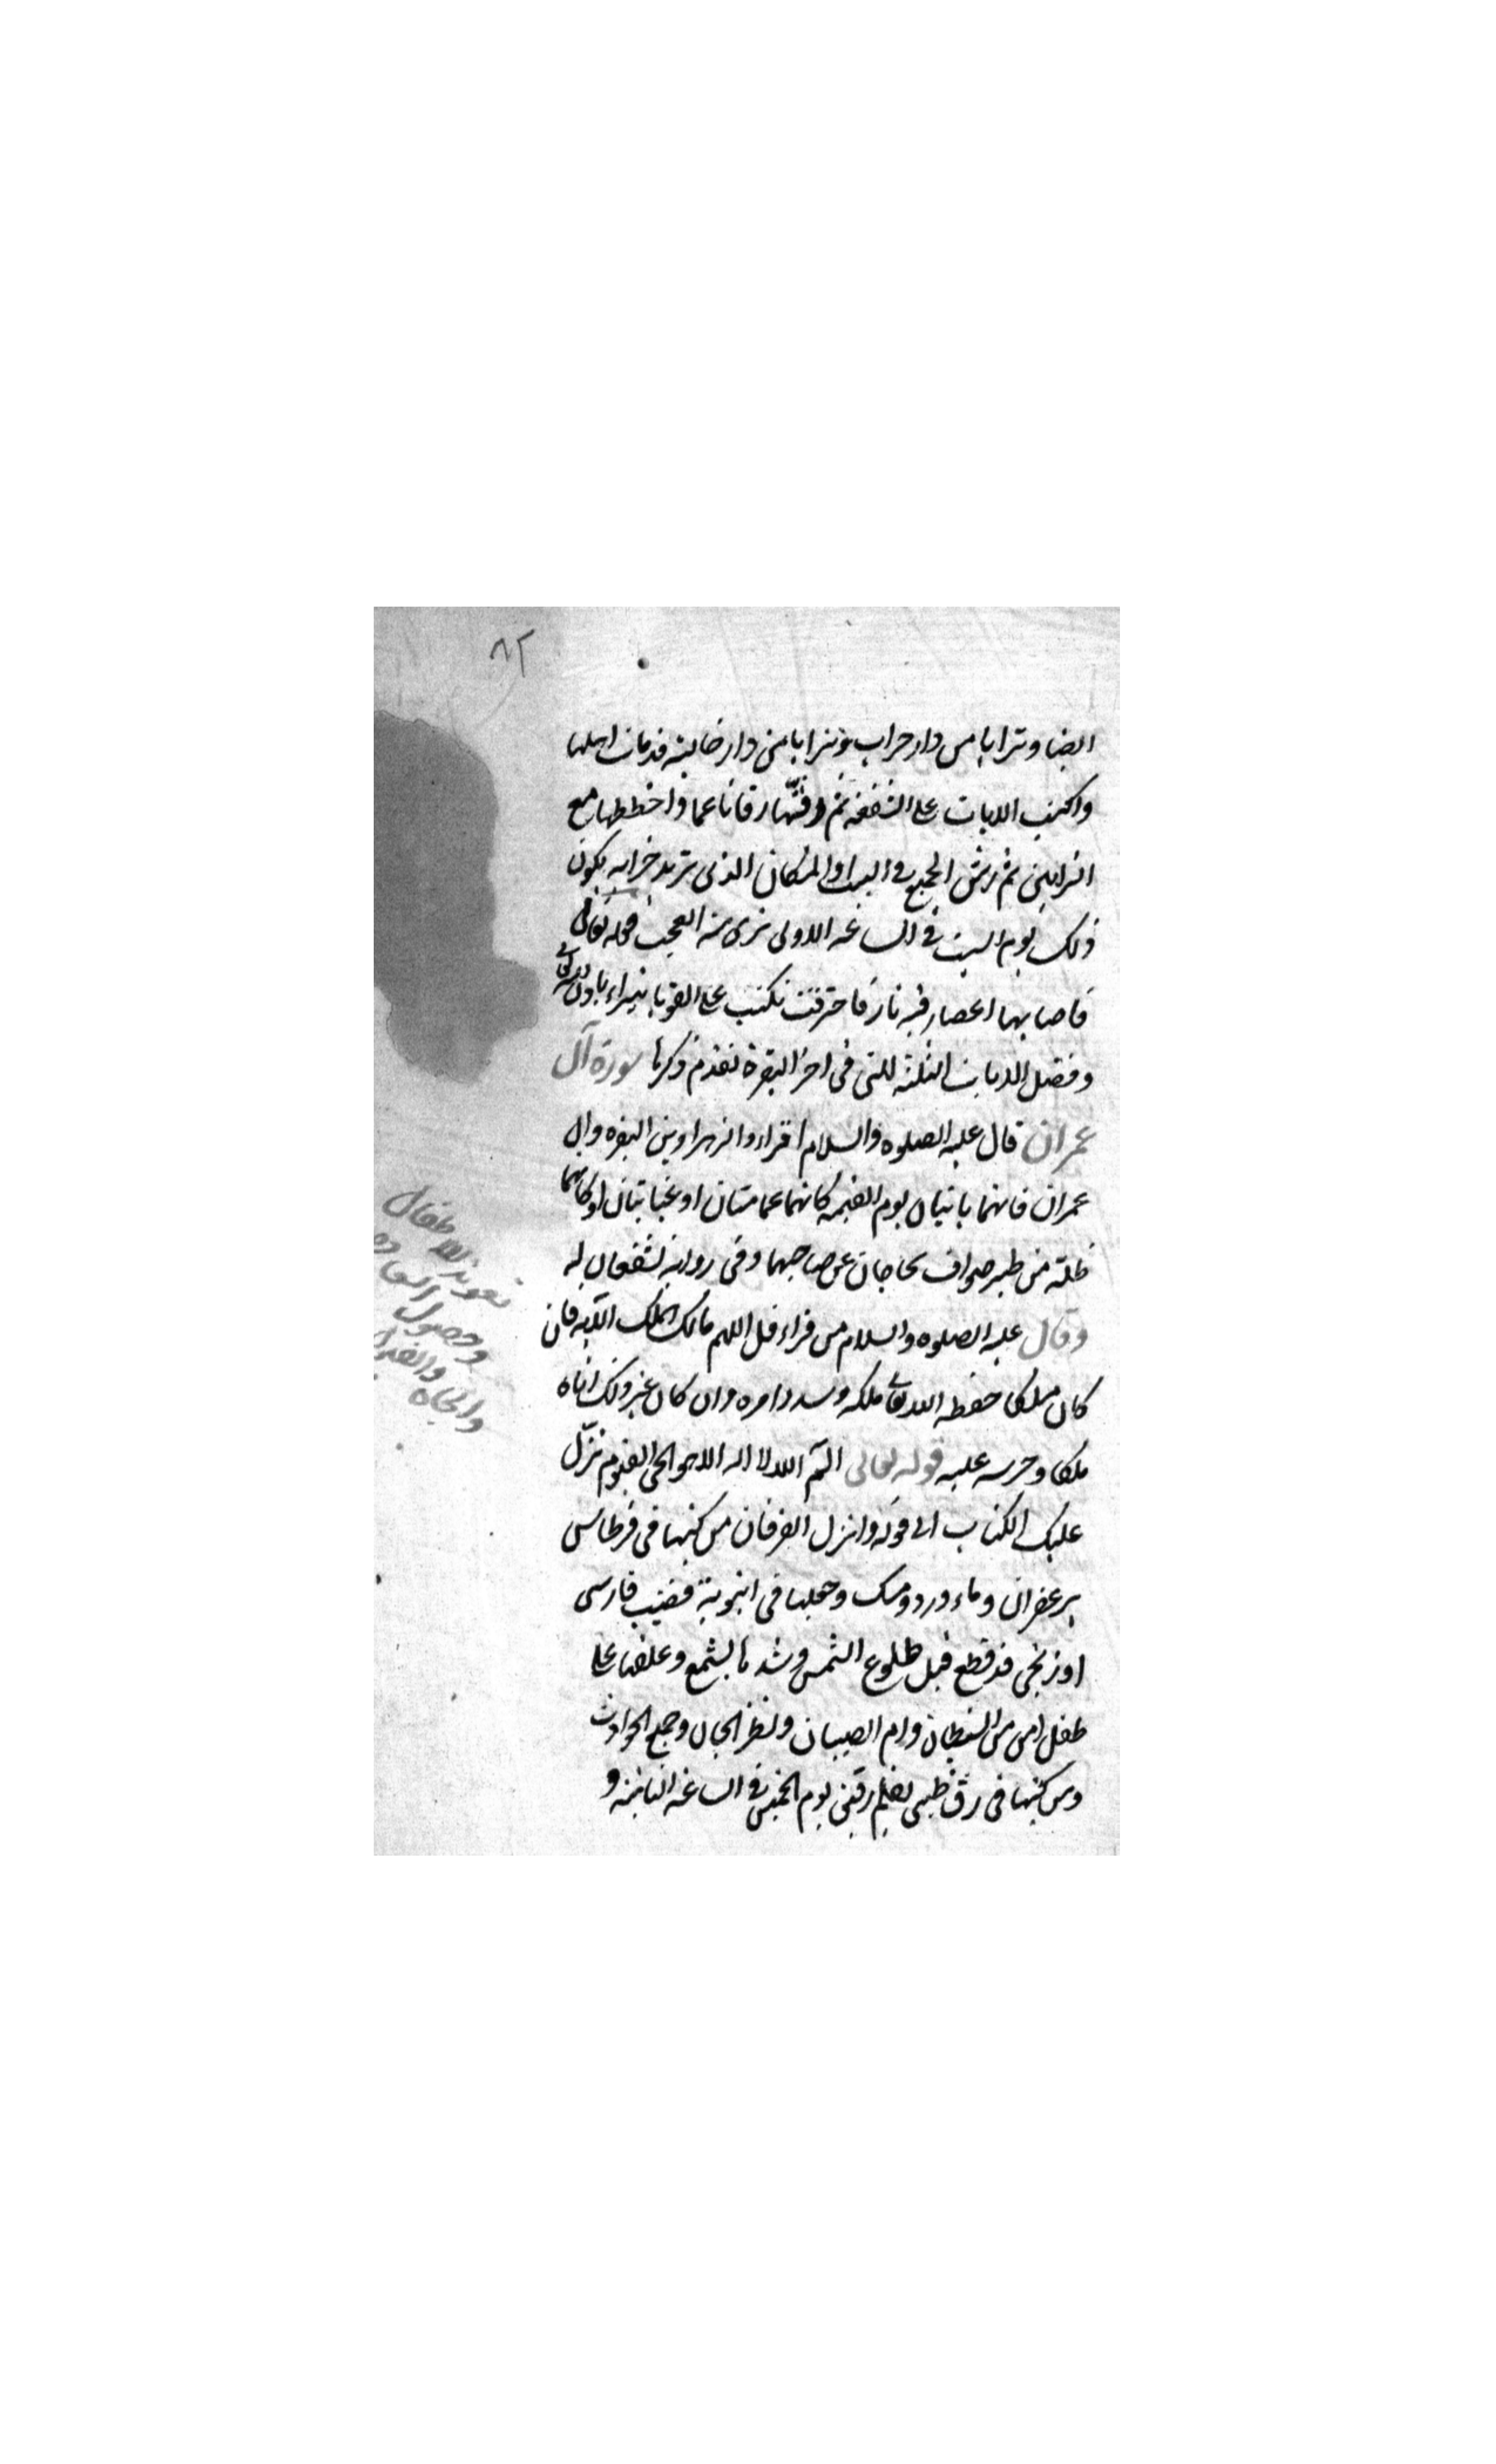 ٨٢
ايضا وترابا من دار خراب وترابا من دار خالية قد مات اهلها
واكتب الايات على الشقفة ثم دقها دقا ناعما واخلطها مع
الترابين ثم رش الجميع في البيت او المكان الذي تريد خرابه يكون
ذلك يوم السبت في الساعه الاولى ترى منه العجب قوله تعالى
فاصابها اعصار فيه نار فاحترقت تكتب على القوبا تبراء باذن الله تعالى
وفضل الايات الثلثه التي في اخر البقرة تقدم ذكرها سورة آل
عمران قال عليه الصلوه والسلام اقراءوا الزهراوين البقره وال
عمران فانهما ياتيان يوم القيمه كانهما غمامتان او غيايتان او كانهما
ظلة من طير صواف يحاجان عن صاحبهما وفي رواية يشفعان له
وقال عليه الصلوه والسلام من قراء قل اللهم مالك الملك الآيه فان
كان ملكا حفظ الله تعالى ملكه وسدد امره وان كان غير ذلك اتاه
ملكا وحرسه عليه قوله تعالى الم الله لا اله الا هو الحي القيوم نزل
عليك الكتاب الى قوله وانزل الفرقان من كتبها في قرطاس
بزعفران وماء ورد ومسك وجعلها في انبوبة قضيب فارسي
او زنجي قد قطع قبل طلوع الشمس وشدها بالشمع وعلقها على
طفل امن من الشيطان وام الصبيان ونظر الجان وجميع الحوادث
ومن كتبها في رق ظبي بقلم رقيق يوم الخميس في الساعه الثانيه و
تعويذ للاطفال
وحصول السعاده
والقبول
والجاه